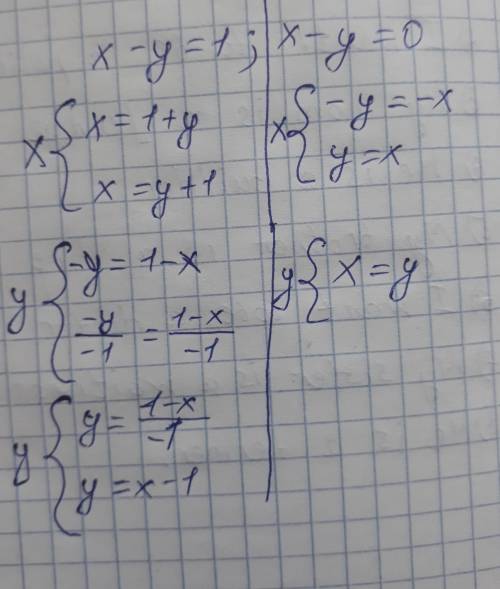 x - y = 1; x - y = 0
x { x = 1 + y
x = y + 1
y { -y = 1 - x
-y/-1 = 1-x/-1
y { y = 1-x/-1
y = x - 1
x { -y = -x
y = x
y { x = y